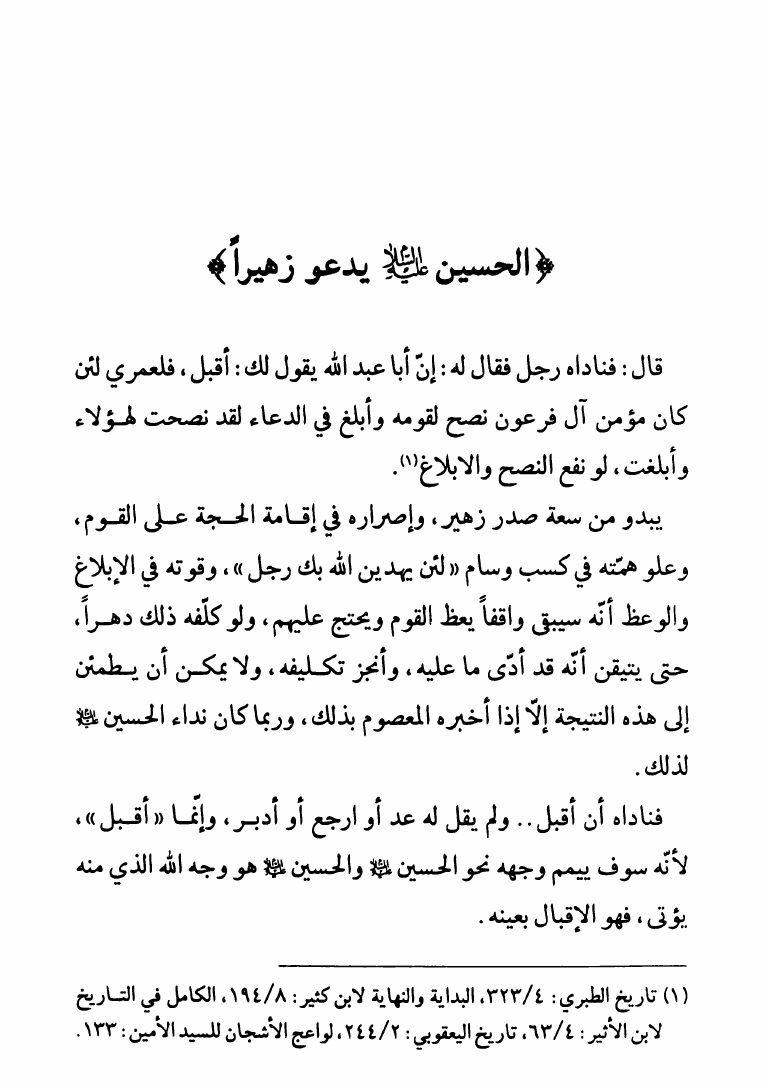 ﴿الحسين عليه السلام يدعو زهيراً﴾
قال: فناداه رجل فقال له: إنّ أبا عبد الله يقول لك: أقبل، فلعمري لئن
كان مؤمن آل فرعون نصح لقومه وأبلغ في الدعاء لقد نصحت لهؤلاء
وأبلغت، لو نفع النصح والابلاغ(١).
يبدو من سعة صدر زهير، وإصراره في إقامة الحجة على القوم،
وعلو همّته في كسب وسام «لئن يهدين الله بك رجل»، وقوته في الإبلاغ
والوعظ أنّه سيبقى واقفاً يعظ القوم ويحتج عليهم، ولو كلّفه ذلك دهراً،
حتى يتيقن أنّه قد أدّى ما عليه، وأنجز تكليفه، ولا يمكن أن يطمئن
إلى هذه النتيجة إلّا إذا أخبره المعصوم بذلك، وربما كان نداء الحسين عليه السلام
لذلك.
فناداه أن أقبل.. ولم يقل له عد أو ارجع أو أدبر، وإنّما «أقبل»،
لأنّه سوف ييمم وجهه نحو الحسين عليه السلام والحسين عليه السلام هو وجه الله الذي منه
يؤتى، فهو الإقبال بعينه.
(١) تاريخ الطبري: ٣٢٣/٤، البداية والنهاية لابن كثير: ١٩٤/٨، الكامل في التاريخ
لابن الأثير: ٦٣/٤، تاريخ اليعقوبي: ٢٤٤/٢، لواعج الأشجان للسيد الأمين: ١٣٣.